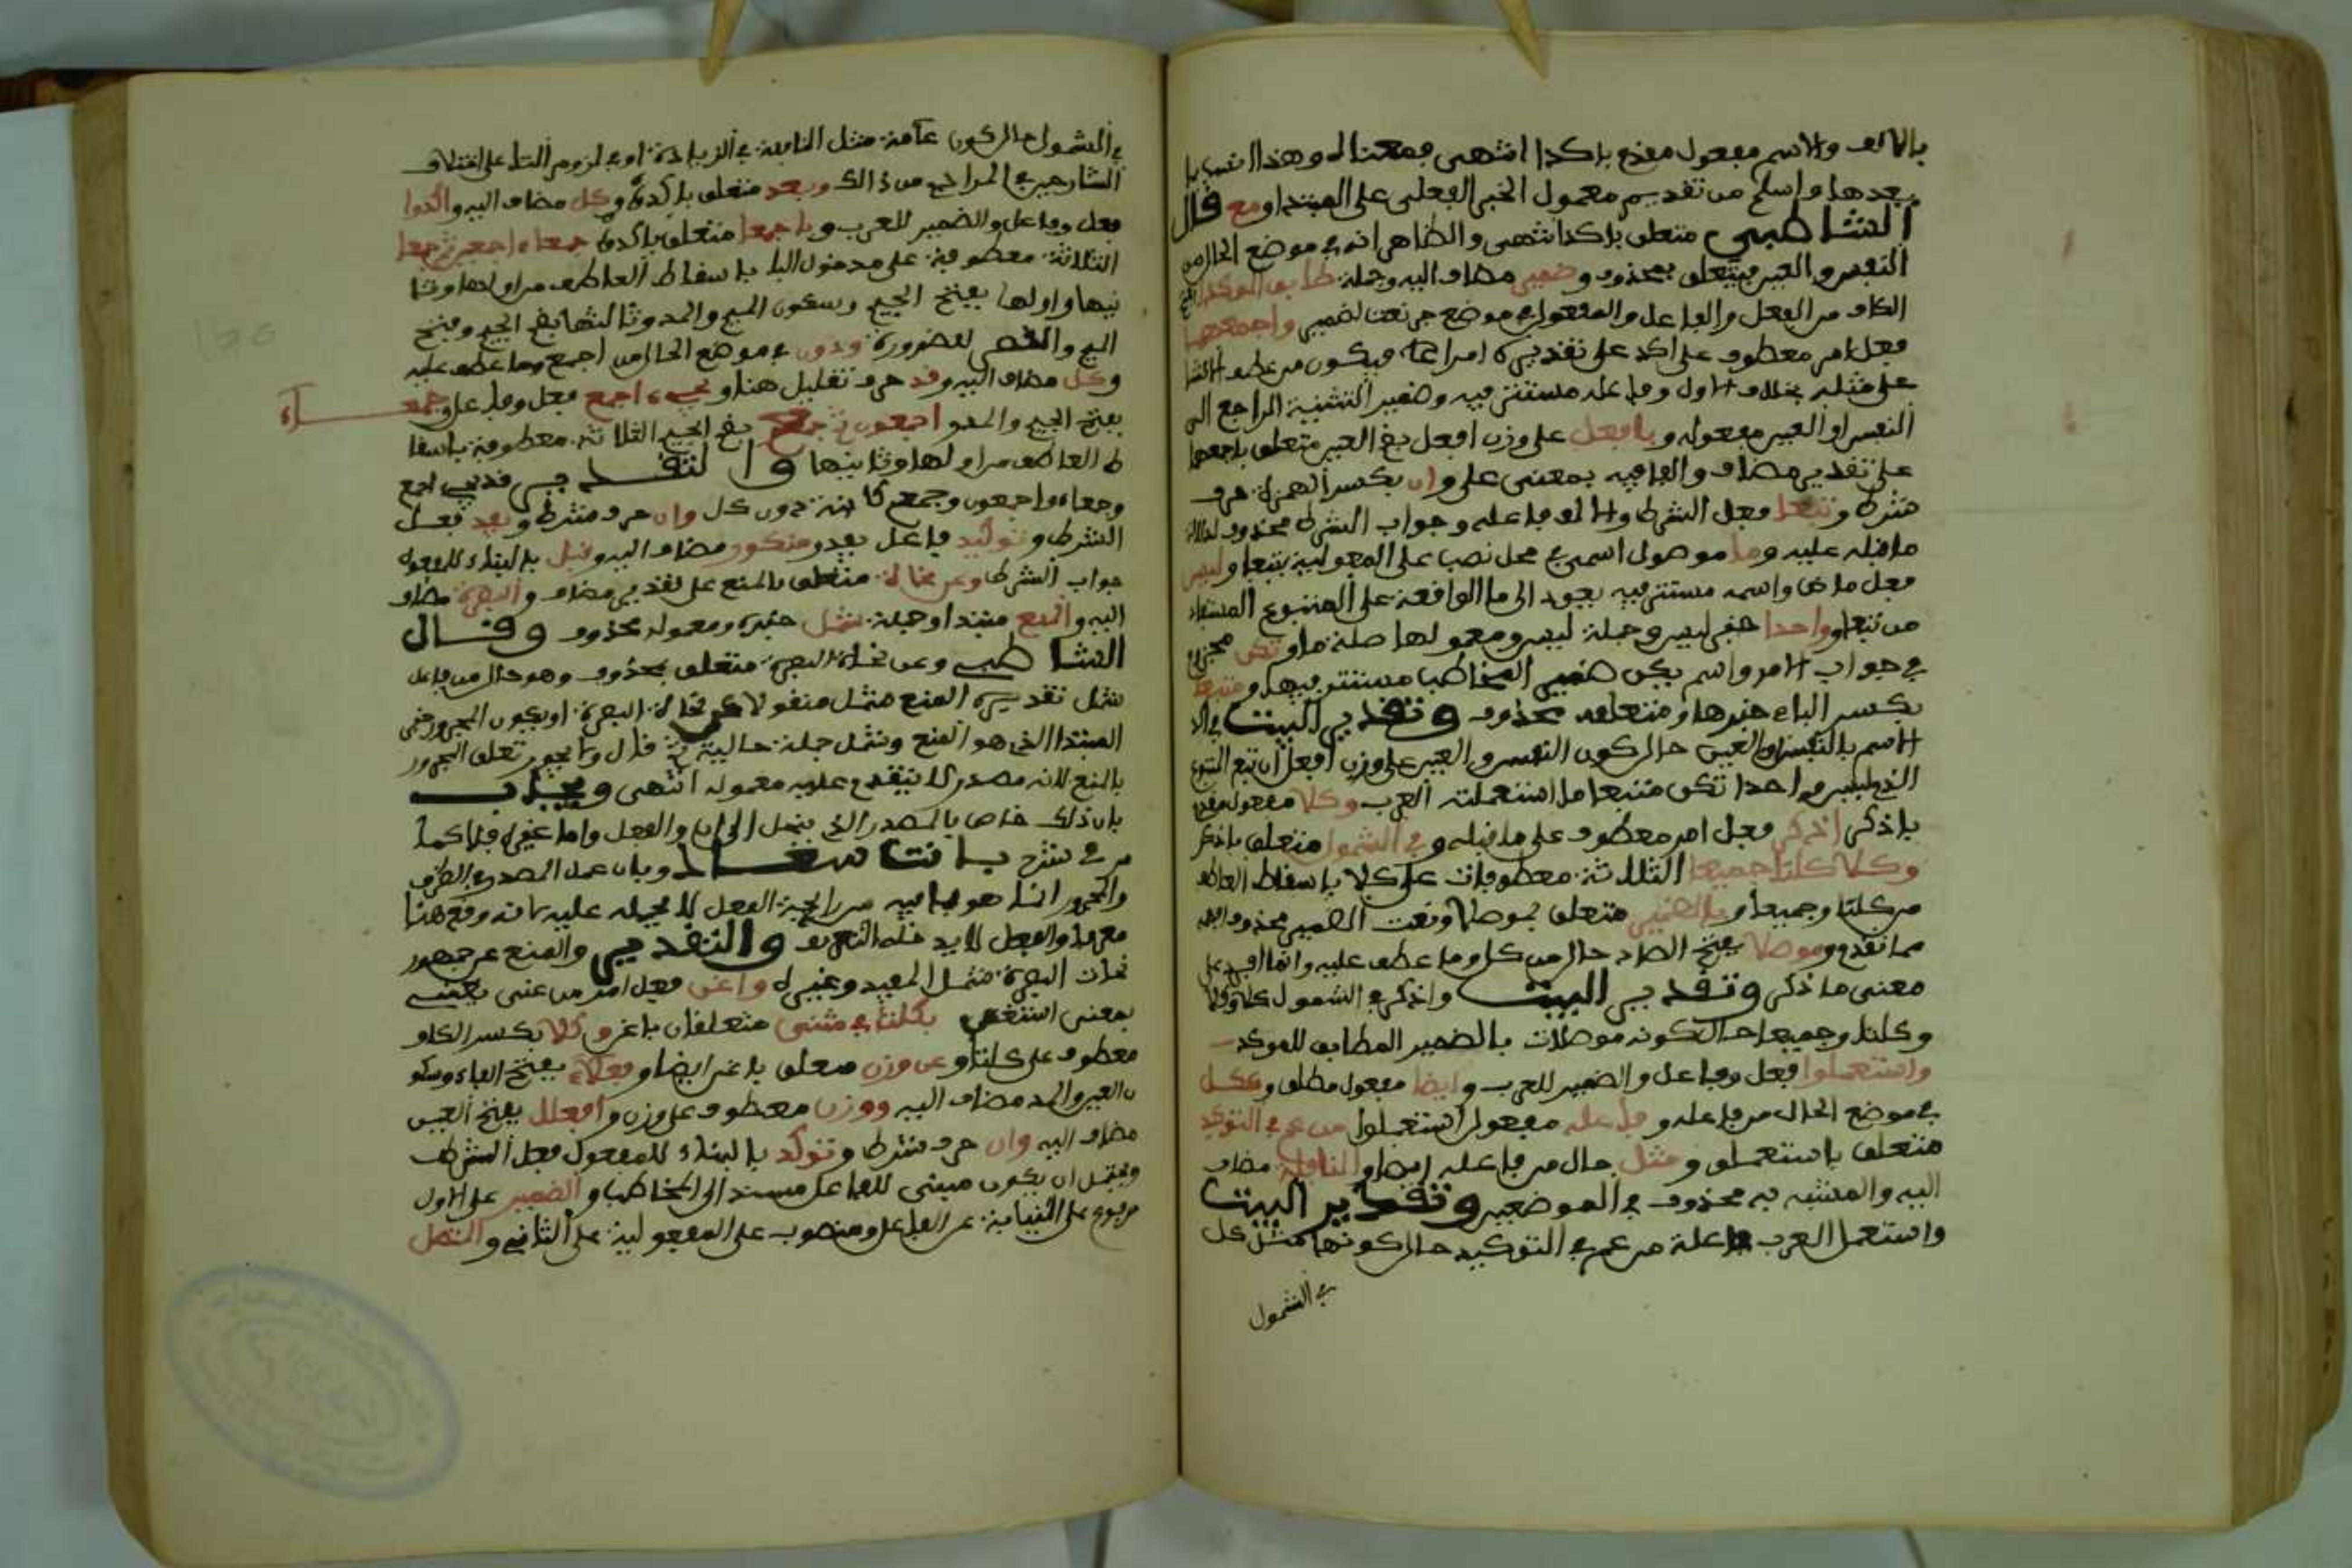 بالالف والاسم مفعول مقدم باكدا انتهى فمعناه وهذا انسب بما
بعدها واسلم من تقديم معمول الخبر الفعلي على المبتدا ومع قال
الشاطبي متعلق باكدا انتهى والظاهر انه في موضع الحال من
النفس والعين فيتعلق بمحذوف وضمير مضاف اليه وجملة طابق الموكدا
الكاف من الفعل والفاعل والمفعول في موضع جر نعت لضمير واجمعهما
فعل امر معطوف على اكد على تقديره امرا فيكون من عطف الانشا
على مثله بخلاف الاول وفاعله مستتر فيه وضمير التثنية الراجع الى
النفس والعين مفعوله وبافعل على وزن افعل بضم العين متعلق باجمعهما
على تقدير مضاف والبا فيه بمعنى على وان بكسر الهمزة حرف
شرط وتبعا فعل الشرط والالف فاعله وجواب الشرط محذوف لدلالة
ما قبله عليه وما موصول اسمي في محل نصب على المفعولية بتبعا وليس
فعل ماض واسمه مستتر فيه يعود الى ما الواقعة على المتبوع المستفاد
من تبعا وواحدا خبر ليس وجملة ليس ومعمولها صلة ما وتكن مجزوم
في جواب الامر واسم يكن ضمير المخاطب مستتر فيها ومتبعا
بكسر الباء خبرها ومتعلقه محذوف وتقدير البيت في
الاسم بالنفس او العين حال كون النفس والعين على وزن افعل ان تبع المتبوع
الذي ليس واحدا تكن متبعا ما استعملته العرب وكلا مفعول مقدم
باذكر اذكر فعل امر معطوف على ما قبله وفي الشمول متعلق باذكر
وكلا كلتا جميعا الثلاثة معطوفات على كلا باسقاط العاطف
من كلتا وجميعا وبالضمير متعلق بموصلا ونعت الضمير محذوف
مما تقدم وموصلا بفتح الصاد حال من كل وما عطف عليه وانما افرد على
معنى ما ذكر وتقدير البيت واذكر في الشمول كلا وكلا
وكلتا وجميعا حال كونه موصلات بالضمير المطابق للموكد
واستعملوا فعل وفاعل والضمير للعرب وايضا مفعول مطلق وككل
في موضع الحال من فاعله وفاعله مفعول استعملوا من عم في التوكيد
متعلق باستعملوا ومثل حال من فاعله ايضا والنافله مضاف
اليه والمشبه به محذوف في الموضعين وتقدير البيت
واستعمل العرب فاعلة من عم في التوكيد حال كونها مثل كل
في الشمول
في الشمول حال كون عامة مثل النافلة في الزيادة او في لزوم التا على اختلاف
الشارحين في المراد من ذالك وبعد متعلق باكدوا وكل مضاف اليه واكدوا
فعل وفاعل والضمير للعرب وباجمعا متعلق باكدوا جمعاء اجمعين ثم جمعا
الثلاثة معطوفة على مدخول البا باسقاط العاطف من اولها وثا
نيها واولها بفتح الجيم وسكون الميم والمد وثالثها بضم الجيم وفتح
الميم والقصر للضرورة ودون في موضع الحال من اجمع وما عطف عليه
وكل مضاف اليه وقد حرف تقليل هنا ويجيء اجمع فعل وفاعل وجمعاء
بفتح الجيم والمد واجمعون ثم جمع بضم الجيم الثلاثة معطوفة باسقا
ط العاطف من اولها وثانيها والتقدير قد يجيء اجمع
وجمعاء واجمعون وجمع كائنة دون كل وان حرف شرط ويفد فعل
الشرط وتوكيد فاعل يفد ومنكور مضاف اليه وقبل بالبناء للمفعول
جواب الشرط وعن نحاة متعلق بالمنع على تقدير مضاف والبصرة مضاف
اليه والمنع مبتدا وجملة شمل خبره ومعموله محذوف وقال
الشاطبي وعن نحاة البصرة متعلق بمحذوف وهو حال من فاعل
شمل تقديره المنع شمل منقولا عن نحاة البصرة او يكون المجرور خبر
المبتدا الذي هو المنع وشمل جملة حالية ثم قال ولا يجوز تعلق المجرور
بالمنع لانه مصدر لا يتقدم عليه معموله انتهى ويجاب
بان ذلك خاص بالمصدر الذي ينحل الى ان والفعل واما غيره فلا كما
مر في شرح بانت سعاد وبان عمل المصدر في الظرف
والمجرور انما هو بما فيه من رائحة الفعل لا بحمله عليه لانه وقع هنا
معرفا والفعل لا يدخله التعريف والتقدير والمنع عن جمهور
نحاة البصرة شمل المفيد وغيره واغن فعل امر من غنى يغنى
بمعنى استغنى بكلتا في مثنى متعلقان باغن وكلا بكسر الكاف
معطوف على كلتا وعن وزن متعلق باغن ايضا وفعلاء بفتح الفاء وسكو
ن العين والمد مضاف اليه ووزن معطوف على وزن وافعلا بفتح العين
مضاف اليه وان حرف شرط وتوكد بالبناء للمفعول فعل الشرط
ويحتمل ان يكون مبني للفاعل مسندا الى المخاطب والضمير على الاول
مرفوع على النيابة عن الفاعل ومنصوب على المفعولية على الثاني والمتصل